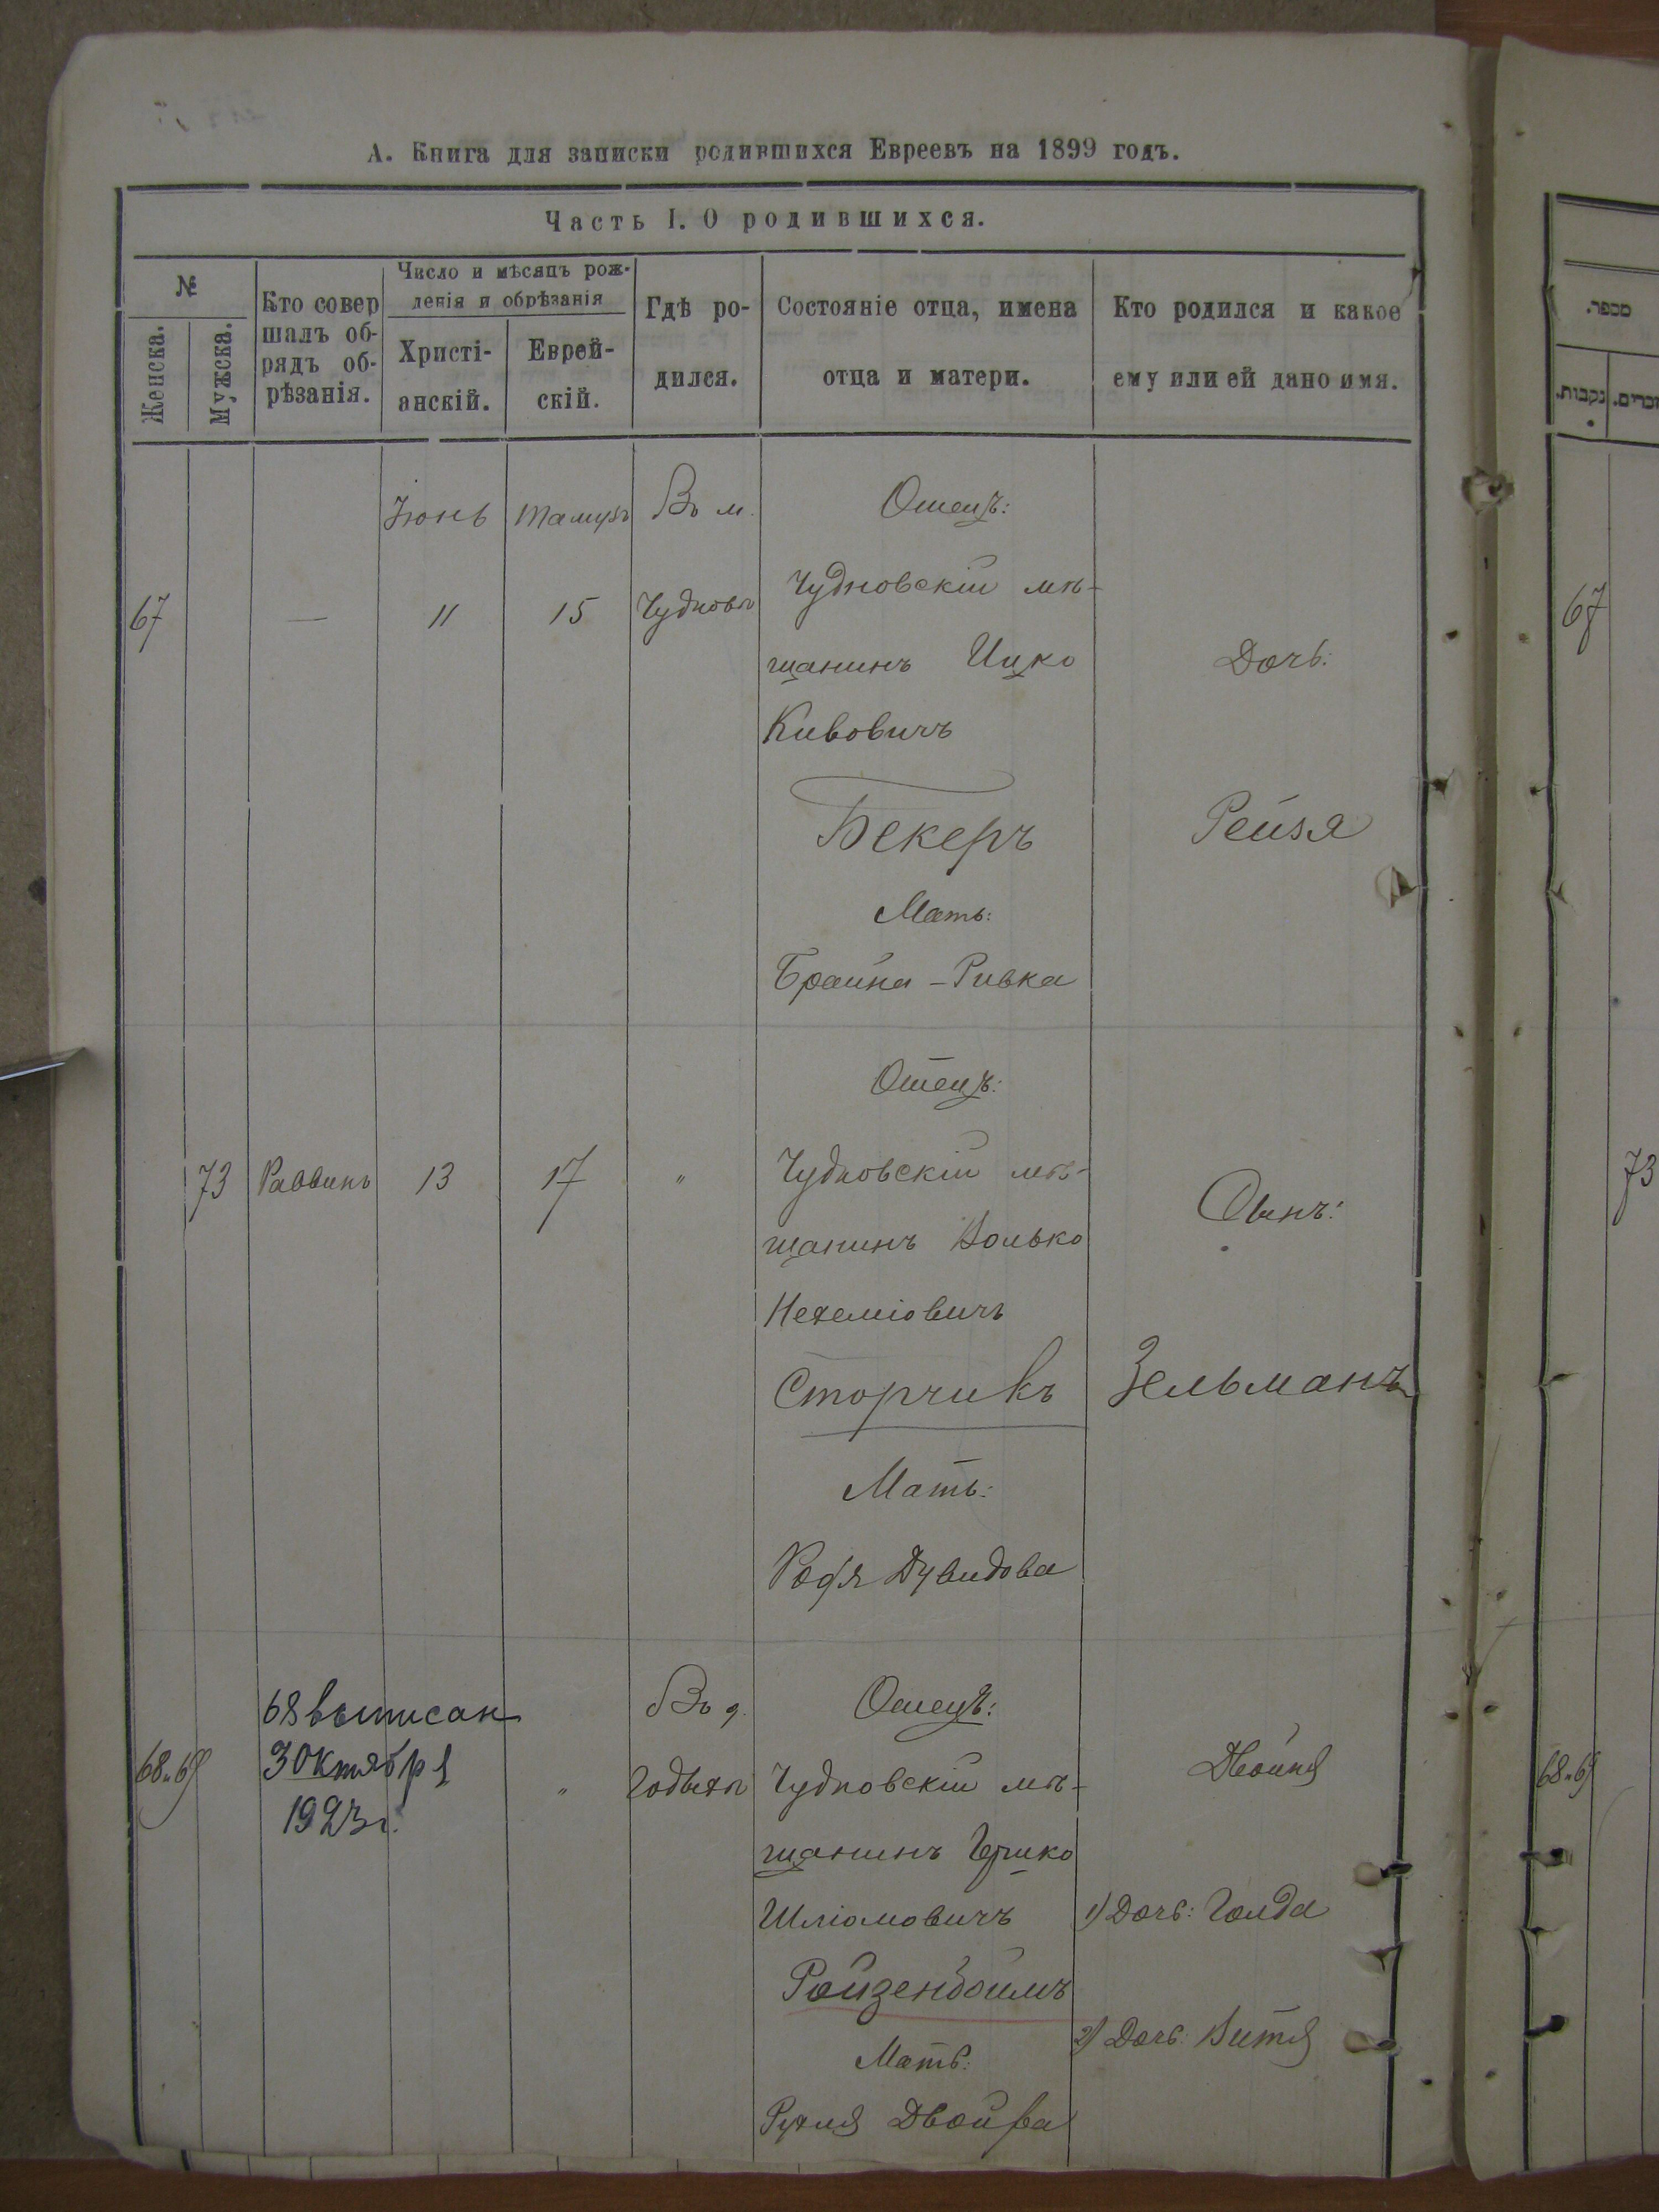 А. Книга для записки родившихся Евреевъ на 1899 годъ.
Часть I. О родившихся.
№
Женска.
Мужска.
Кто совер
шалъ об-
рядъ об-
рѣзанія.
Число и мѣсяцъ рож-
денія и обрѣзанія
Христі-
анскій.
Еврей-
скій.
Гдѣ ро-
дился.
Состояніе отца, имена
отца и матери.
Кто родился и какое
ему или ей дано имя.
מספר.
נקבות.
Іюнь
Тамузъ
Въ м.
Отецъ:
67
—
11
15
Чудновѣ
Чудновскій мѣ-
щанинъ Ицко
Кивовичъ
Бекеръ
Мать:
Брайна - Ривка
Дочь:
Рейзя
67
73
Раввинъ
13
17
"
Отецъ:
Чудновскій мѣ-
щанинъ Волько
Нехеміовичъ
Сторчикъ
Мать:
Дувидова
Сынъ:
Зельманъ
73
68 и 69
68 выписан
3 Октября
1923 г.
"
Въ д.
Годыхѣ
Отецъ:
Чудновскій мѣ-
щанинъ Гершко
Шліомовичъ
Ройзенбоимъ
Мать:
Рухля Двойра
Двойня
1) Дочь: Голда
2) Дочь: Витя
68 и 69